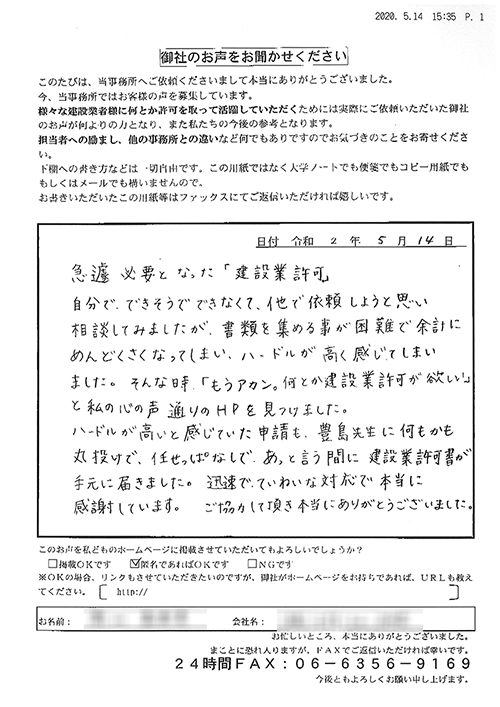 2020. 5.14 15:35 P. 1
御社のお声をお聞かせください
このたびは、当事務所へご依頼くださいまして本当にありがとうございました。
今、当事務所ではお客様の声を募集しています。
様々な建設業者様に何とか許可を取って活躍していただくためには実際にご依頼いただいた御社
のお声が何よりの力となり、また私たちの今後の参考となります。
担当者への励まし、他の事務所との違いなど何でもありですのでお気づきのことをお寄せくださ
い。
下欄への書き方などは一切自由です。この用紙ではなく大学ノートでも便箋でもコピー用紙でも
もしくはメールでも構いませんので。
お書きいただいたこの用紙等はファックスにてご返信いただければ嬉しいです。
日付 令和 2 年 5 月 14 日
急遽 必要となった「建設業許可」
自分で、できそうでできなくて、他で依頼しようと思い
相談してみましたが、書類を集める事が困難で余計に
めんどくさくなってしまい、ハードルが高く感じてしまい
ました。そんな時、「もうアカン。何とか建設業許可が欲い!」
と私の心の声通りのHPを見つけました。
ハードルが高いと感じていた申請も、豊島先生に何もかも
丸投げで、任せっぱなしで、あっと言う間に建設業許可書が
手元に届きました。迅速でていねいな対応で本当に
感謝しています。ご協力して頂き本当にありがとうございました。
このお声を私どものホームページに掲載させていただいてもよろしいでしょうか?
□掲載OKです ☑匿名であればOKです □NGです
※OKの場合、リンクもさせていただきたいのですが、御社がホームページをお持ちであれば、URLも教え
てください。[ http:// ]
お名前: 会社名:
お忙しいところ、本当にありがとうございました。
まことに恐れ入りますが、FAXでご返信いただければ幸いです。
24時間FAX:06-6356-9169
今後ともよろしくお願い申し上げます。